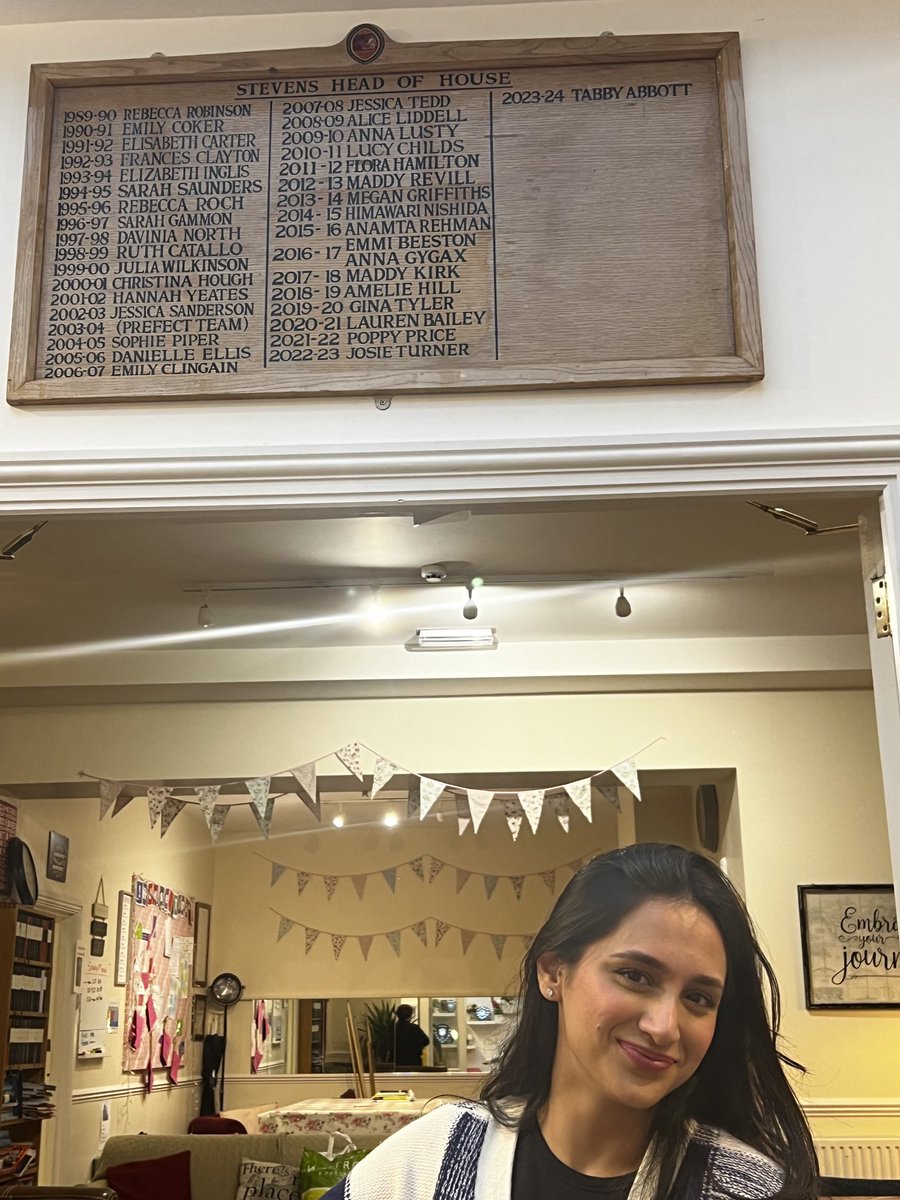 STEVENS HEAD OF HOUSE
1989-90 REBECCA ROBINSON
1990-91 EMILY COKER
1991-92 ELISABETH CARTER
1992-93 FRANCES CLAYTON
1993-94 ELIZABETH INGLIS
1994-95 SARAH SAUNDERS
1995-96 REBECCA ROCH
1996-97 SARAH GAMMON
1997-98 DAVINIA NORTH
1998-99 RUTH CATALLO
1999-00 JULIA WILKINSON
2000-01 CHRISTINA HOUGH
2001-02 HANNAH YEATES
2002-03 JESSICA SANDERSON
2003-04 (PREFECT TEAM)
2004-05 SOPHIE PIPER
2005-06 DANIELLE ELLIS
2006-07 EMILY CLINGAIN
2007-08 JESSICA TEDD
2008-09 ALICE LIDDELL
2009-10 ANNA LUSTY
2010-11 LUCY CHILDS
2011-12 FLORA HAMILTON
2012-13 MADDY REVILL
2013-14 MEGAN GRIFFITHS
2014-15 HIMAWARI NISHIDA
2015-16 ANAMTA REHMAN
2016-17 EMMI BEESTON
ANNA GYGAX
2017-18 MADDY KIRK
2018-19 AMELIE HILL
2019-20 GINA TYLER
2020-21 LAUREN BAILEY
2021-22 POPPY PRICE
2022-23 JOSIE TURNER
2023-24 TABBY ABBOTT
Embra
your
journ
There's
place